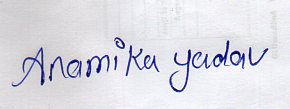 Anamika yadav